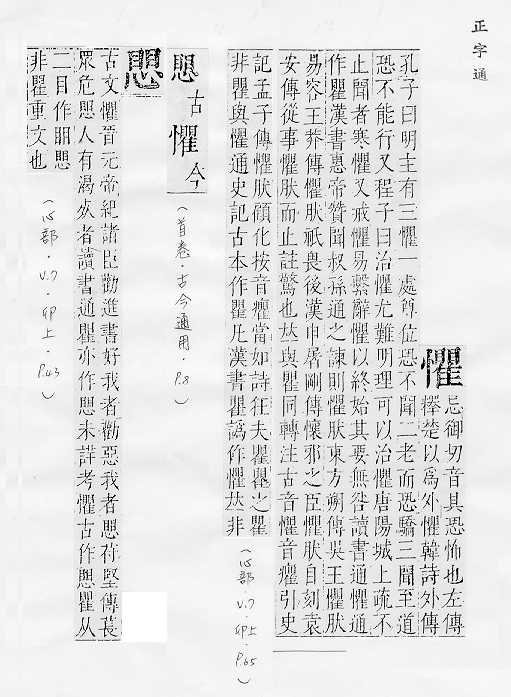 正字通
懼
忌御切音具恐怖也左傳
棒楚以爲外懼韓詩外傳
孔子曰明主有三懼一處尊位恐不聞二老而恐驕三聞至道
恐不能行又程子曰治懼尤難明理可以治懼唐陽城上疏不
止聞者寒懼又戒懼易繫辭懼以終始其要無咎讀書通懼通
作瞿漢書惠帝贊聞叔孫通之諫則懼肰東方朔傳吳王懼肰
易容王莽傳懼肰祇畏後漢申屠剛傳懷邪之臣懼肰自刻袁
安傳從事懼肰而止註驚也𠀤與瞿同轉注古音懼音癯引史
記孟子傳懼肰顧化按音癯當如詩狂夫瞿瞿之瞿
非瞿與懼通史記古本作瞿凡漢書瞿譌作懼𠀤非
(心部.V.7.卯上.P.65)
愳古懼今
(首卷.古今通用.P.8)
愳
古文懼晉元帝紀諸臣勸進書好我者勸惡我者愳苻堅傳萇
眾危愳人有渴死者讀書通瞿亦作愳未詳考懼古作愳瞿从
二目作䀠愳
非瞿重文也
(心部.V.7.卯上.P.43)